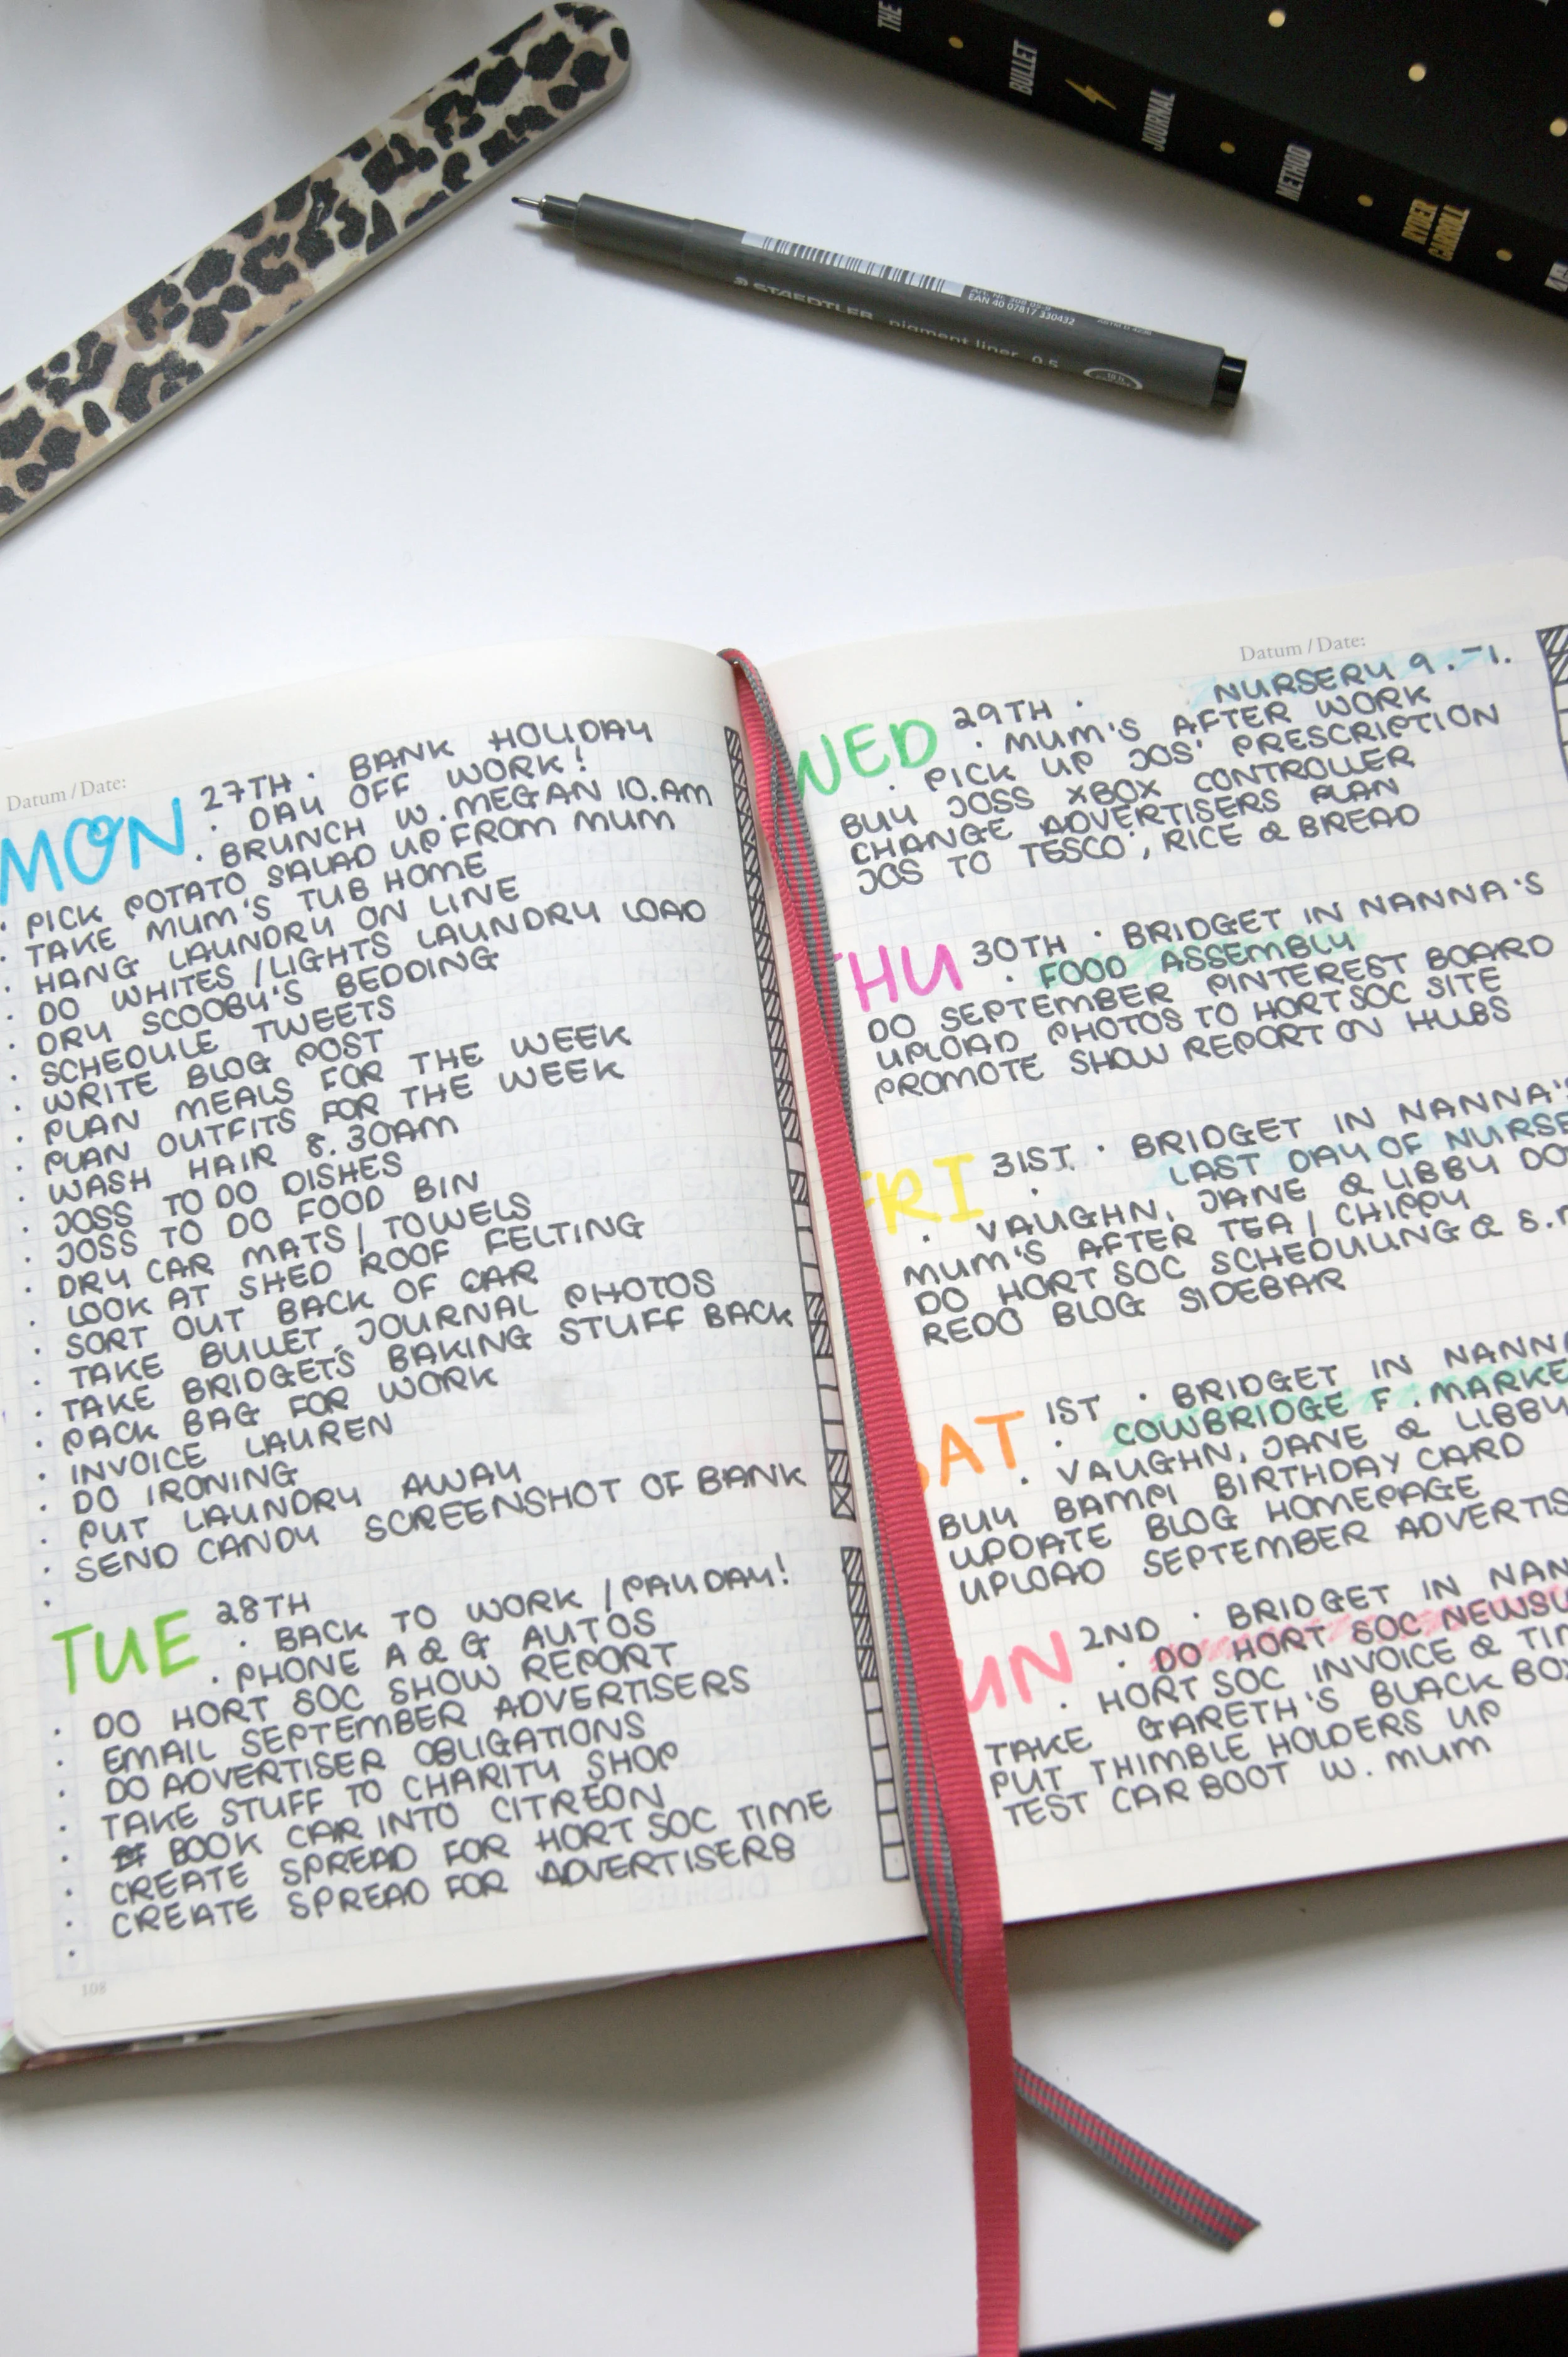 THE BULLET JOURNAL METHOD RYDER CARROLL
EAN 40 07817 330432
STAEDTLER pigment liner 0.5
Datum / Date:
MON 27TH · BANK HOLIDAY
· DAY OFF WORK!
· BRUNCH W. MEGAN 10.AM
· PICK POTATO SALAD UP FROM MUM
· TAKE MUM'S TUB HOME
· HANG LAUNDRY ON LINE
· DO WHITES / LIGHTS LAUNDRY LOAD
· DRY SCOOBY'S BEDDING
· SCHEDULE TWEETS
· WRITE BLOG POST
· PLAN MEALS FOR THE WEEK
· PLAN OUTFITS FOR THE WEEK
· WASH HAIR 8.30AM
· JOSS TO DO DISHES
· JOSS TO DO FOOD BIN
· DRY CAR MATS / TOWELS
· LOOK AT SHED ROOF FELTING
· SORT OUT BACK OF CAR
· TAKE BULLET JOURNAL PHOTOS
· TAKE BRIDGET'S BAKING STUFF BACK
· PACK BAG FOR WORK
· INVOICE LAUREN
· DO IRONING
· PUT LAUNDRY AWAY
· SEND CANDY SCREENSHOT OF BANK
·
TUE 28TH
· BACK TO WORK / PAYDAY!
· PHONE A & G AUTOS
· DO HORT SOC SHOW REPORT
· EMAIL SEPTEMBER ADVERTISERS
· DO ADVERTISER OBLIGATIONS
· TAKE STUFF TO CHARITY SHOP
· BOOK CAR INTO CITREON
· CREATE SPREAD FOR HORT SOC TIME
· CREATE SPREAD FOR ADVERTISERS
·
108
Datum / Date:
WED 29TH · NURSERY 9.-1.
· MUM'S AFTER WORK
· PICK UP JOS' PRESCRIPTION
BUY JOSS XBOX CONTROLLER
CHANGE ADVERTISERS PLAN
JOS TO TESCO, RICE & BREAD
THU 30TH · BRIDGET IN NANNA'S
· FOOD ASSEMBLY
DO SEPTEMBER PINTEREST BOARD
UPLOAD PHOTOS TO HORT SOC SITE
PROMOTE SHOW REPORT ON HUBS
FRI 31ST · BRIDGET IN NANNA'S
· LAST DAY OF NURSE
· VAUGHN, JANE & LIBBY DO
MUM'S AFTER TEA / CHIPPY
DO HORT SOC SCHEDULING & S.M
REDO BLOG SIDEBAR
SAT 1ST · BRIDGET IN NANNA
· COWBRIDGE F. MARKE
· VAUGHN, JANE & LIBBY
BUY BAMPI BIRTHDAY CARD
UPDATE BLOG HOMEPAGE
UPLOAD SEPTEMBER ADVERTIS
UN 2ND · BRIDGET IN NAN
· DO HORT SOC NEWSL
· HORT SOC INVOICE & TIM
TAKE GARETH'S BLACK BOX
PUT THIMBLE HOLDERS UP
TEST CAR BOOT W. MUM